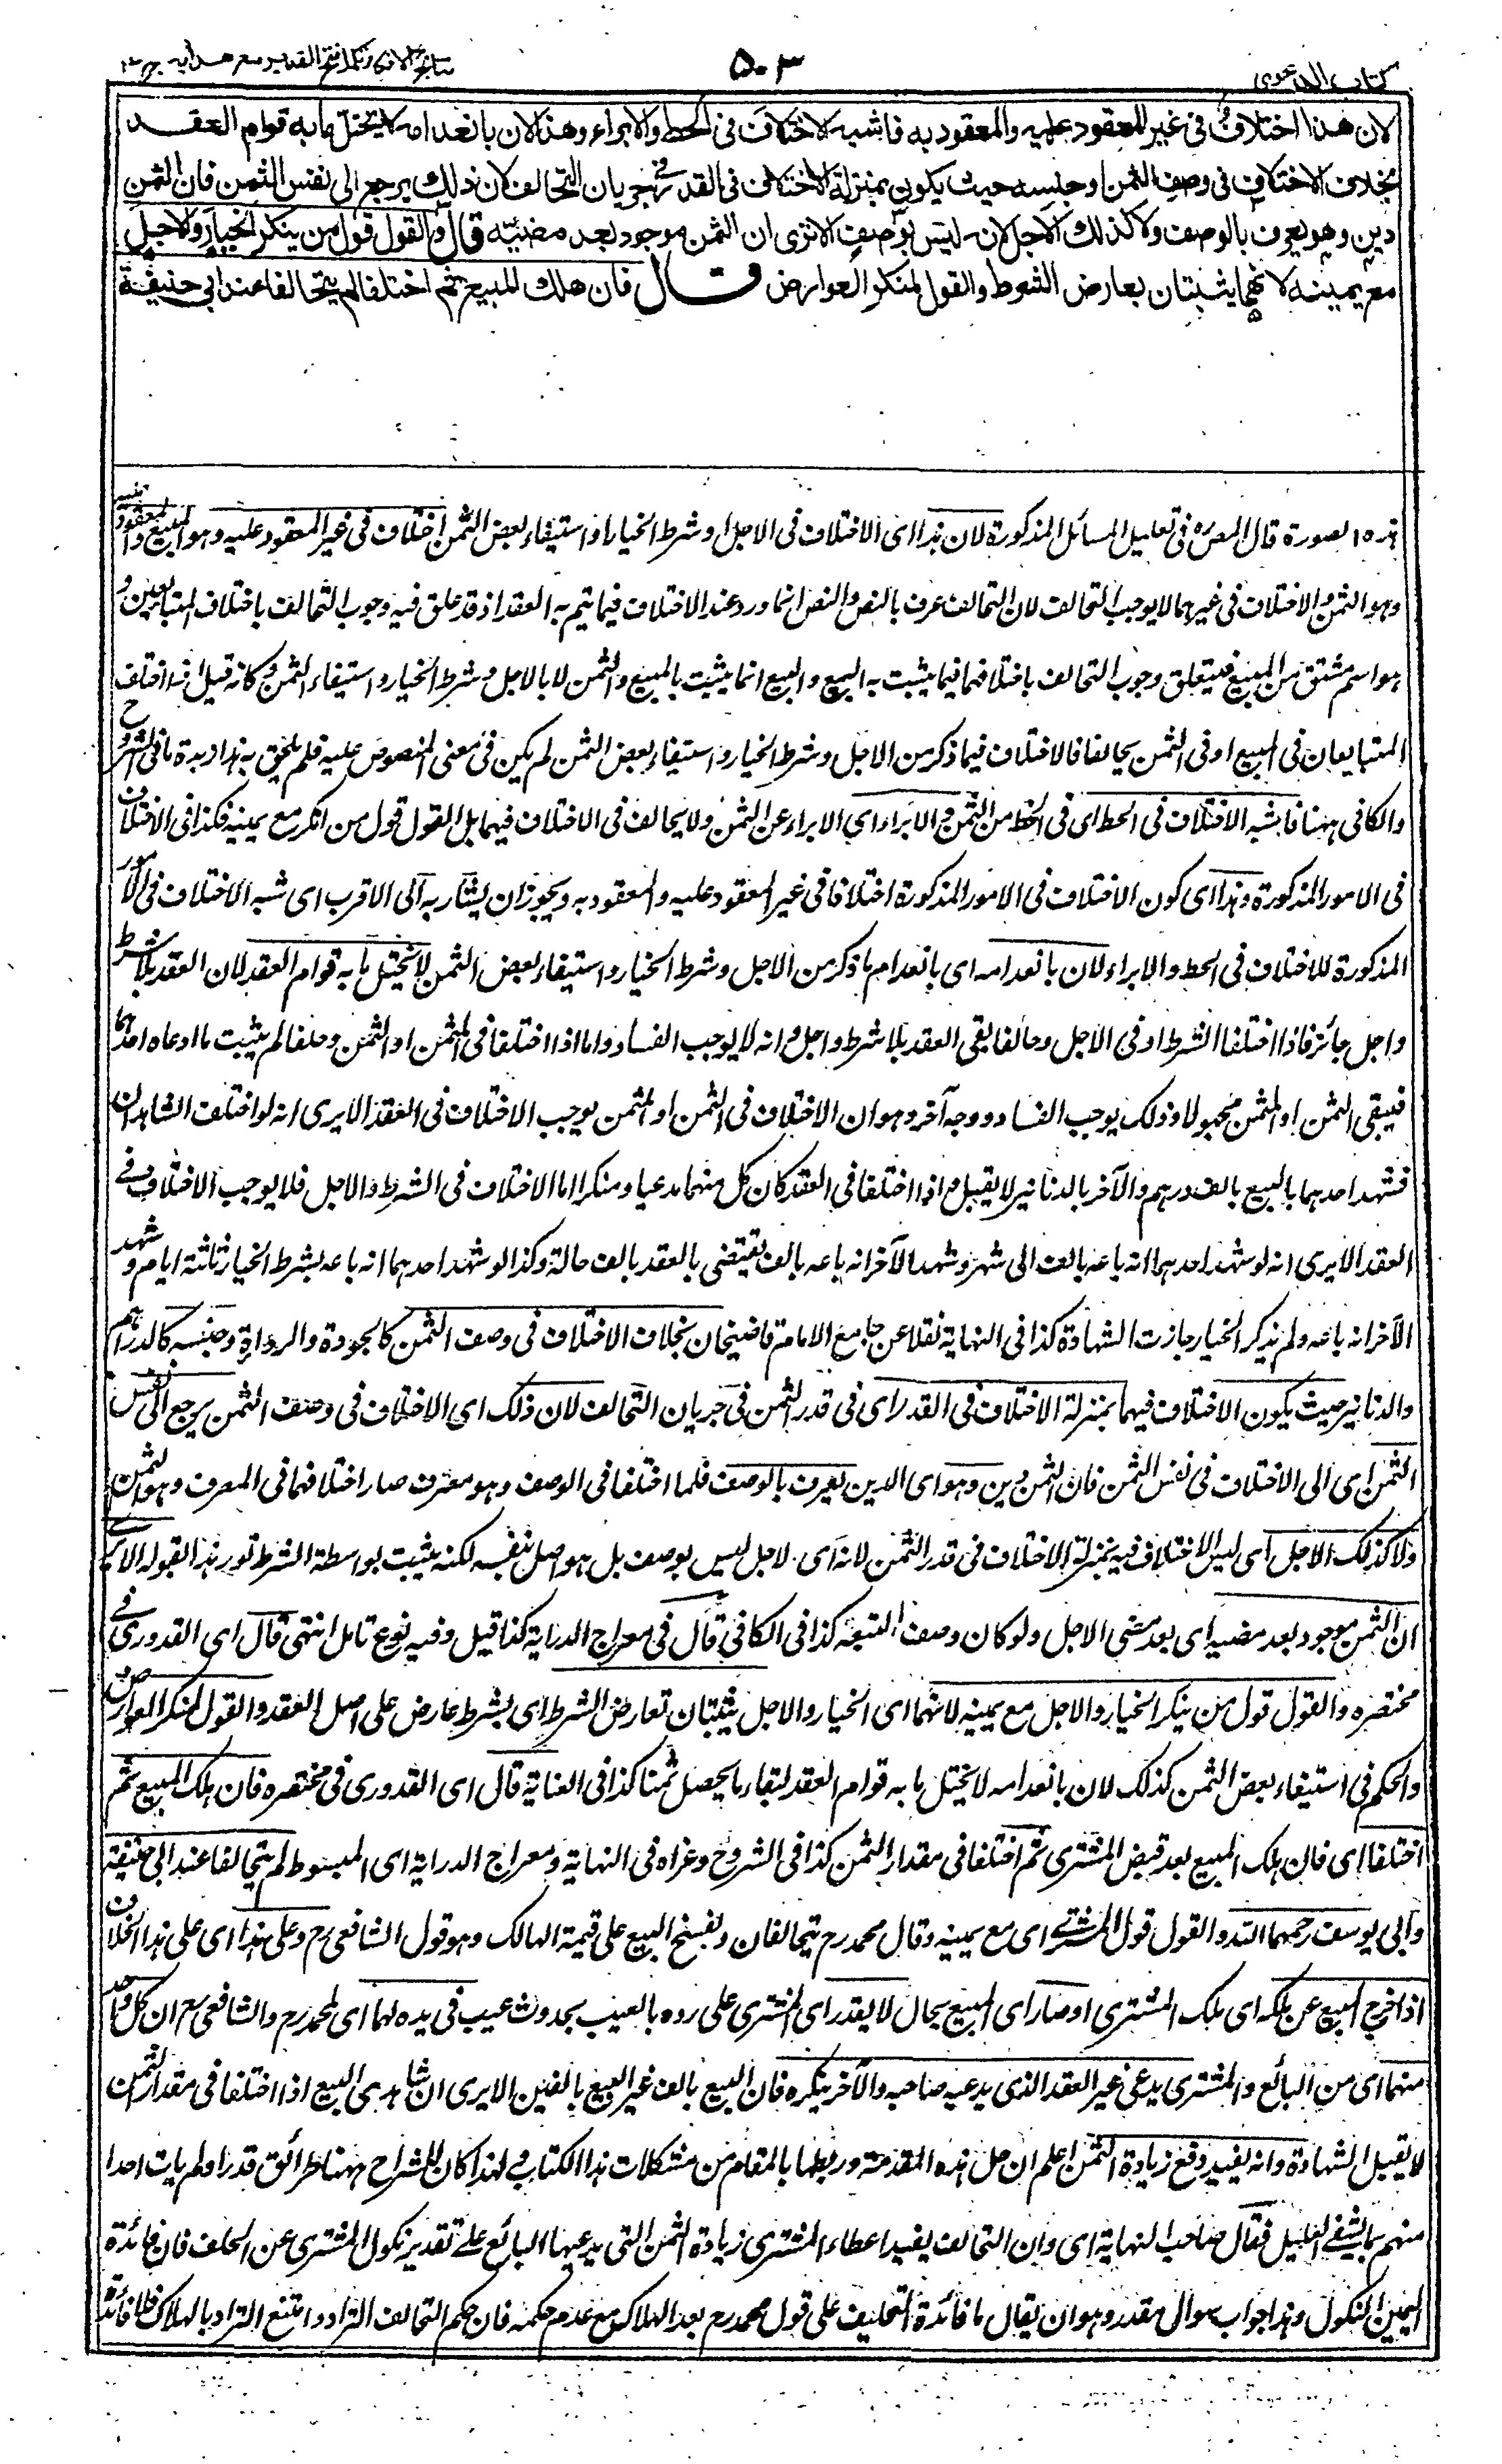 كتاب الدعوى
٥٠٣
نتائج الافكار تكملة فتح القدير مع هدايه ج ٣
لان هذا اختلاف فى غير المعقود عليه والمعقود به فاشبه الاختلاف فى الحط والابراء وهذا لان بانعدامه لا يختل ما به قوام العقد
بخلاف الاختلاف فى وصف الثمن او جنسه حيث يكون بمنزلة الاختلاف فى القدر فى جريان التحالف لان ذلك يرجع الى نفس الثمن فان الثمن
دين وهو يعرف بالوصف ولا كذلك الاجل لانه ليس بوصف الا ترى ان الثمن موجود بعد مضيه قال والقول قول من ينكر الخيار والاجل
مع يمينه لانهما يثبتان بعارض الشرط والقول لمنكر العوارض قال فان هلك المبيع ثم اختلفا لم يتحالفا عند ابى حنيفة
هذه الصورة قال المص ره فى تعليل المسائل المذكورة لان هذا اى الاختلاف فى الاجل او شرط الخيار او استيفاء بعض الثمن اختلاف فى غير المعقود عليه وهو المبيع والمعقود به
وهو الثمن والاختلاف فى غيرهما لا يوجب التحالف لان التحالف عرف بالنص والنص انما ورد عند الاختلاف فيما يتم به العقد اذ قد علق فيه وجوب التحالف باختلاف المتبايعين و
هو اسم مشتق من البيع فيتعلق وجوب التحالف باختلافهما فيما يثبت به البيع والبيع انما يثبت بالمبيع والثمن لا بالاجل وشرط الخيار واستيفاء الثمن وكانه قيل اذا اختلف
المتبايعان فى المبيع او فى الثمن يحالفا فالاختلاف فيما ذكر من الاجل وشرط الخيار واستيفاء بعض الثمن لم يكن فى معنى المنصوص عليه فلم يلحق به هذا زبدة ما فى الشروح
والكافى ههنا فاشبه الاختلاف فى الحط اى فى الحط من الثمن والابراء اي الابراء عن الثمن ولا يحالف فى الاختلاف فيهما بل القول قول من انكر مع يمينه فكذا فى الاختلاف
فى الامور المذكورة وهذا اى كون الاختلاف فى الامور المذكورة اختلافا فى غير المعقود عليه والمعقود به ويجوز ان يشار به الى الاقرب اى شبه الاختلاف فى الامور
المذكورة للاختلاف فى الحط والابراء لان بانعدامه اى بانعدام ما ذكر من الاجل وشرط الخيار واستيفاء بعض الثمن لا يختل ما به قوام العقد لان العقد بلا شرط
واجل جائز فاذا اختلفا الشرط او فى الاجل وحالفا بقى العقد بلا شرط واجل وانه لا يوجب الفساد واما اذا اختلفا فى المثمن او الثمن وحلفا لم يثبت ما ادعاه احدهما
فيبقى الثمن او المثمن مجهولا وذلك يوجب الفساد ووجه آخر وهو ان الاختلاف فى الثمن او المثمن يوجب الاختلاف فى العقد الا يرى انه لو اختلف الشاهدان
فشهد احدهما بالبيع بالف درهم والآخر بالدنانير لا يقبل واذا اختلفا فى العقد كان كل منهما مدعيا ومنكرا اما الاختلاف فى الشرط والاجل فلا يوجب الاختلاف فى
العقد الا يرى انه لو شهد احدهما انه باعه بالف الى شهر وشهد الآخر انه باعه بالف يقتضى بالعقد بالف حالة وكذا لو شهد احدهما انه باعه بشرط الخيار ثلثة ايام وشهد
الآخر انه باعه ولم يذكر الخيار جازت الشهادة كذا فى النهاية نقلا عن جامع الامام قاضيخان بخلاف الاختلاف فى وصف الثمن كالجودة والرداءة وجنسه كالدراهم
والدنانير حيث يكون الاختلاف فيهما بمنزلة الاختلاف فى القدر اى فى قدر الثمن فى جريان التحالف لان ذلك اى الاختلاف فى وصف الثمن يرجع الى نفس
الثمن اى الى الاختلاف فى نفس الثمن فان الثمن دين وهو اى الدين يعرف بالوصف فلما اختلفا فى الوصف وهو معرف صار اختلافهما فى المعرف وهو الثمن
ولا كذلك الاجل اى ليس الاختلاف فيه بمنزلة الاختلاف فى قدر الثمن لانه اى الاجل ليس بوصف بل هو اصل بنفسه لكنه يثبت بواسطة الشرط نور هذا بقوله الا يرى
ان الثمن موجود بعد مضيه اى بعد مضى الاجل ولو كان وصفا لتبعه كذا فى الكافى قال فى معراج الدراية كذا قيل وفيه نوع تامل انتهى قال اى القدورى فى
مختصره والقول قول من ينكر الخيار والاجل مع يمينه لانهما اى الخيار والاجل يثبتان بعارض الشرط اى بشرط عارض على اصل العقد والقول لمنكر العوارض
والحكم فى استيفاء بعض الثمن كذلك لان بانعدامه لا يختل ما به قوام العقد لبقاء ما يحصل ثمنا كذا فى العناية قال اى القدورى فى مختصره فان هلك المبيع ثم
اختلفا اى فان هلك المبيع بعد قبض المشترى ثم اختلفا فى مقدار الثمن كذا فى الشروح وعزاه فى النهاية ومعراج الدراية اى المبسوط لم يتحالفا عند ابى حنيفة
وابى يوسف رحمهما الله والقول قول المشترى اى مع يمينه وقال محمد رح يتحالفان ويفسخ البيع على قيمة الهالك وهو قول الشافعى رح وعلى هذا اى على هذا الخلاف
اذا خرج المبيع عن ملكه اى ملك المشترى او صار اى المبيع بحال لا يقدر اى المشترى على رده بالعيب بحدوث عيب فى يده لهما اى لمحمد رح والشافعى رح ان كل واحد
منهما اى من البائع والمشترى يدعى غير العقد الذى يدعيه صاحبه والآخر ينكره فان البيع بالف غير البيع بالفين الا يرى ان شاهدى البيع اذا اختلفا فى مقدار الثمن
لا يقبل الشهادة وانه يفيد دفع زيادة الثمن اعلم ان حل هذه المقدمة وربطها بالمقام من مشكلات هذا الكتاب ولهذا كان للشراح ههنا طرائق قددا ولم يات احدا
منهم بما يشفى الغليل فقال صاحب النهاية اى وان التحالف يفيد اعطاء المشترى زيادة الثمن التى يدعيها البائع على تقدير نكول المشترى عن الحلف فان فائدة
اليمين النكول وهذا جواب سوال مقدر وهو ان يقال ما فائدة التحليف على قول محمد رح بعد الهلاك مع عدم حكمه فان حكم التحالف التراد وامتنع التراد بالهلاك فلا فائدة